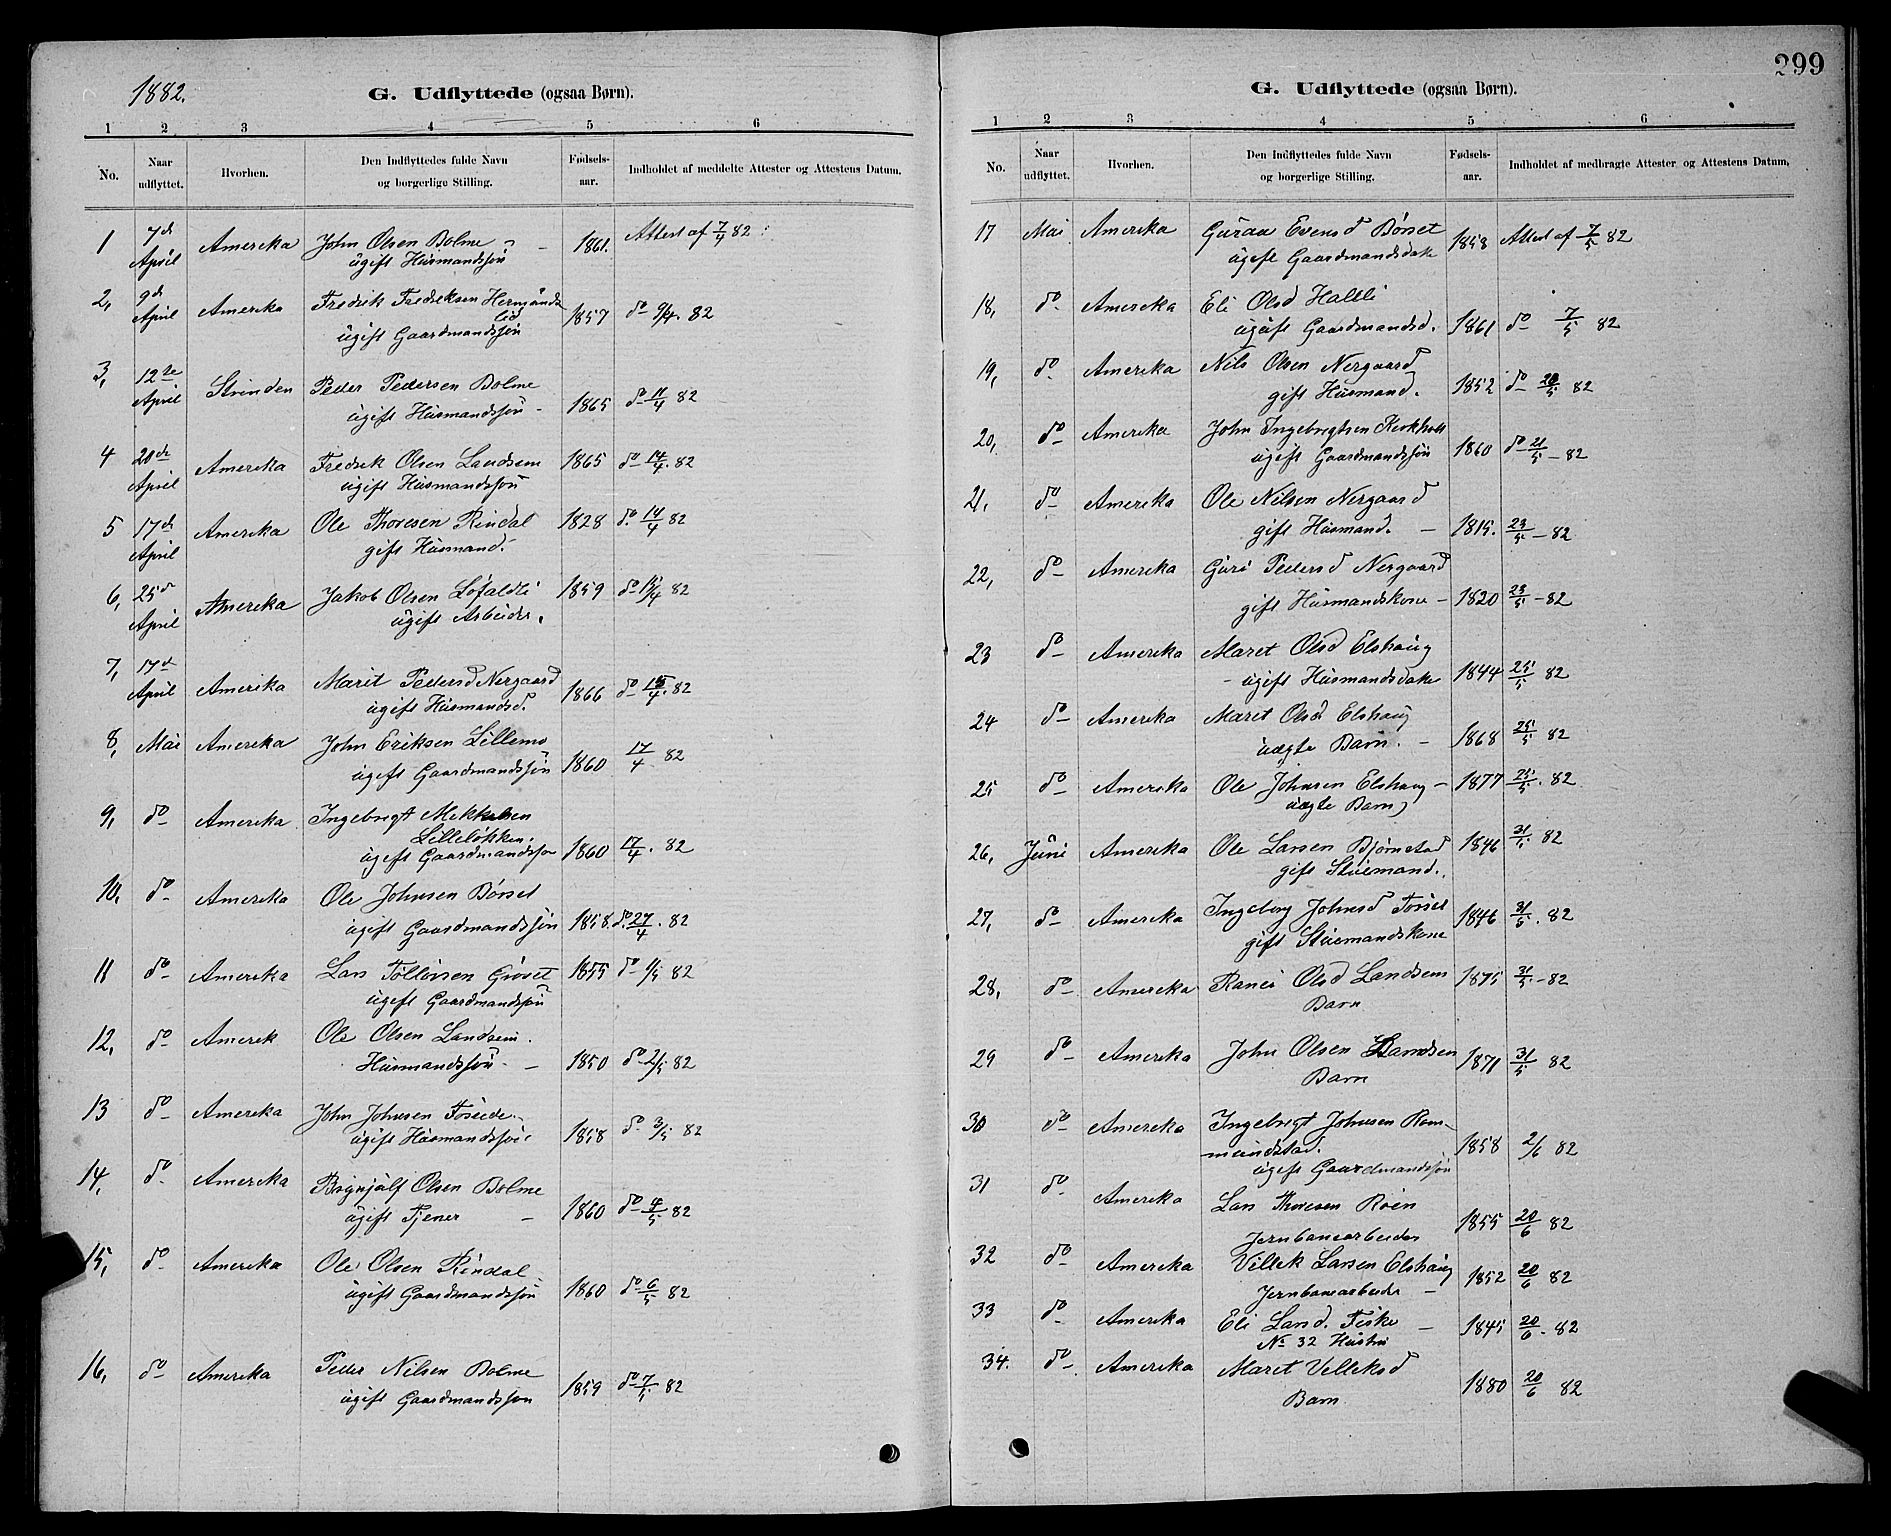 1882.
G. Udflyttede (ogsaa Børn).
1 2 3 4 5 6
No. Naar udflyttet. Hvorhen. Den Indflyttedes fulde Navn og borgerlige Stilling. Fødsels-aar. Indholdet af meddelte Attester og Attestens Datum.
1 7de April Amerika John Olsen Bolme 1861. Attest af 7/4 82
ugift Husmandssøn
2, 9de April Amerika Fredrik Fredriksen Hermands
lid
ugift Gaardmandssøn 1857 do 9/4. 82
3, 12te April Strinden Peder Pedersen Bolme
ugift Husmandssøn - 1865 do 11/4 82
4 20de April Amerika Fredrik Olsen Landsem 1865 do 14/4. 82
ugift Husmandssøn
5 17de April Amerika Ole Thoresen Rindal 1828 do. 14/4 82
gift Husmand.
6, 25de April Amerika Jakob Olsen Løfaldli 1859 do 15/4 82
ugift Arbeider.
7, 17de April Amerika Marit Pedersd Nergaard
ugift Husmandsd. 1866 do 15/4. 82
8, Mai Amerika John Eriksen Lillemo
ugift Gaardmandssøn 1860 17/4 82
9, do Amerika Ingebrigt Mikkelsen
Lilleløkken.
ugift Gaardmandssøn 1860 17/4. 82
10, do Amerika Ole Johnsen Børset
ugift Gaardmandssøn 1858. do. 27/4. 82
11 do Amerika Lars Tollevsen Grøset 1855 do 1/5 82
ugift Gaardmandssøn
12, do Amerik Ole Olsen Landsem.
Husmandssøn - 1850 do 2/5 82
13 do Amerika John Johnsen
ugift Husmandssøn 1858 do 3/5 82
14, do. Amerika Brynjulf Olsen Bolme
ugift Tjener - 1860 do 4/5 82
15, do Amerika Ole Olsen Rindal
ugift Gaardmandssøn 1860 do 6/5 82
16, do Amerika Peder Nilsen Bolme
ugift Gaardmandssøn 1859 do 7/5 82
299
G. Udflyttede (ogsaa Børn).
1 2 3 4 5 6
No. Naar udflyttet. Hvorhen. Den Indflyttedes fulde Navn og borgerlige Stilling. Fødsels-aar. Indholdet af medbragte Attester og Attestens Datum.
17 Mai Amerika Guraa Evensd Børset 1858 Attest af 7/5 82
ugift Gaardmandsdatr
18, do Amerika Eli Olsd Haltli
ugift Gaardmandsd. 1861 do 7/5 82
19, do Amerika Nils Olsen Nergaard
gift Husmand. 1852 do 20/5 82
20, do Amerika John Ingebrigtsen Kirkholt
ugift Gaardmandssøn 1860 do 21/5 - 82
21, do Amerika Ole Nilsen Nergaard
gift Husmand. - 1815. 23/5 - 82
22, do Amerika Guri Pedersd Nergaard
gift Husmandskone - 1820 23/5 - 82
23 do Amerika Maret Olsd Elshaug
- ugift Husmandsdatr 1844 25/5 82
24 do Amerika Maret Olsd Elshaug
uægte Barn. - 1868 25/5 82
25 do Amerika Ole Johnsen Elshaug - 1877 25/5. 82
uægte Barn
26, Juni Amerika Ole Larsen Bjørnstad 1846 31/5 82
gift Stuemand.
27, do Amerika Ingeborg Johnsd 1846 31/5. 82
gift Stuemandskone
28, do Amerika Ranei Olsd Landsem 1875 31/5 - 82
Barn
29 do Amerika John Olsen Landsem 1871 31/5 82
Barn
30 do Amerika Ingebrigt Johnsen Rom-
mundstad. 1858 2/6 82
ugift Gaardmandssøn
31 do Amerika Lars Thoresen Røen 1855 20/6 82
Jernbanearbeider
32 do Amerika Villek Larsen Elshaug 1852 20/6 82
Jernbanearbeider -
33 do Amerika Eli Larsd. Fiske - 1845 20/6. 82
No 32 Hustru
34. do Amerika Maret Velleksd 1880 20/6 82
Barn